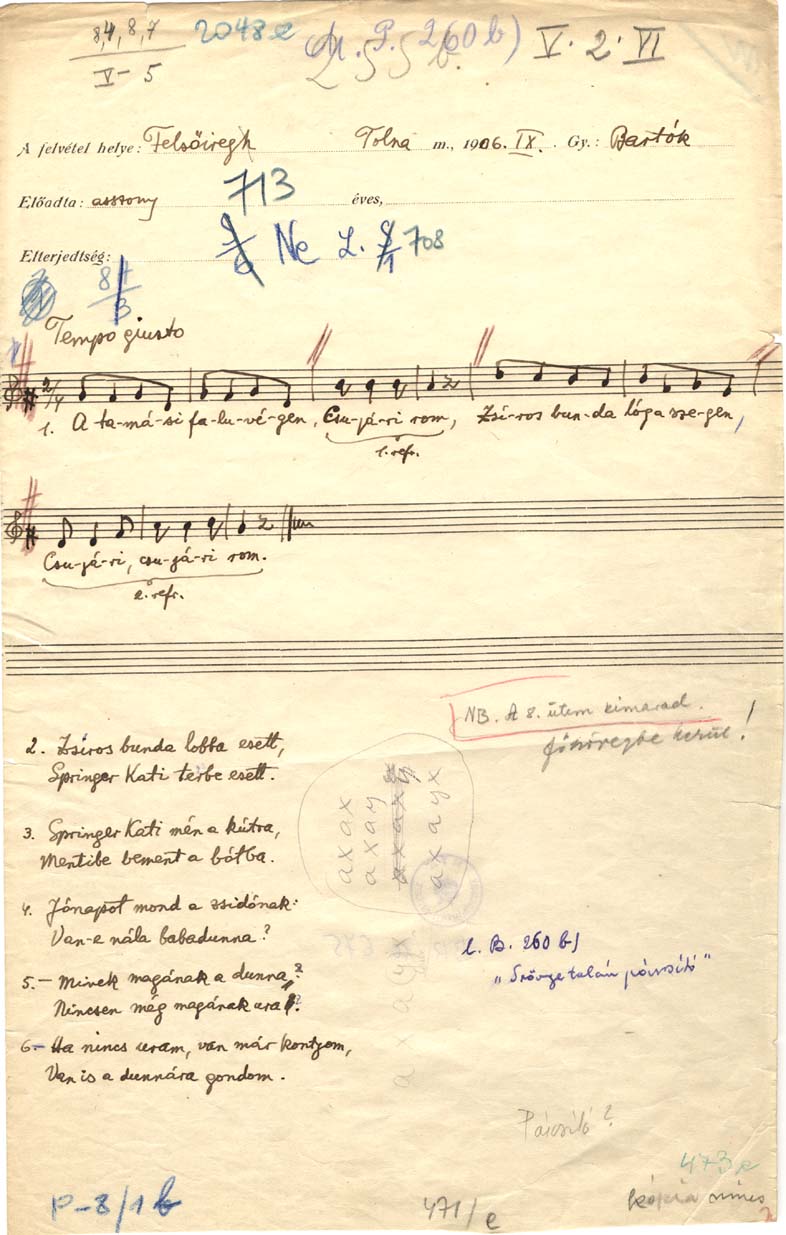 8,4,8,7
V- 5
2048e
(M. P. 260 b)
V. 2. VI
A felvétel helye: Felsőiregh Tolna m., 1906. IX. Gy.: Bartók
Előadta: asszony 713 éves,
Elterjedtség: Ne L. 708
Tempo giusto
2/4
1. A ta-má-si fa-lu-vé-gen, Csu-já-ri rom, Zsí-ros bun-da lóga sze-gen,
1. refr.
Csu-já-ri, csu-já-ri rom.
2. refr.
NB. A 8. ütem kimarad.
főszövegbe kerül!
2. Zsíros bunda lobba esett,
Springer Kati térbe esett.
3. Springer Kati mén a kútra,
Mentibe bement a bótba.
4. Jónapot mond a zsidónak:
Van-e nála babadunna?
5.- Minek magának a dunna,?
Nincsen még magának ura?
6.- Ha nincs uram, van már kontyom,
Van is a dunnára gondom.
a x a x
a x a y
a x a x y
a x a y x
a x a (y)
l. B. 260 b)
"Szövegtelán párosító"
Párosító?
473e
kópia nincs
P-8/1b
471/e